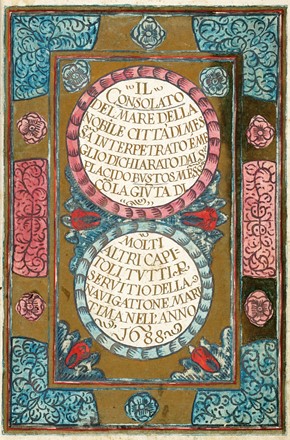 IL
CONSOLATO
DEL MARE DELLA
NOBILE CITTA DI MES
SA INTERPETRATO E ME
GLIO DICHIARATO DAL S
PLACIDO BVSTOS MESS
COLA GIVTA DI
MOLTI
ALTRI CAPI
TOLI TVTTI P
SERVITIO DELLA
NAVIGATIONE MARI
TIMA NELL ANNO
1688